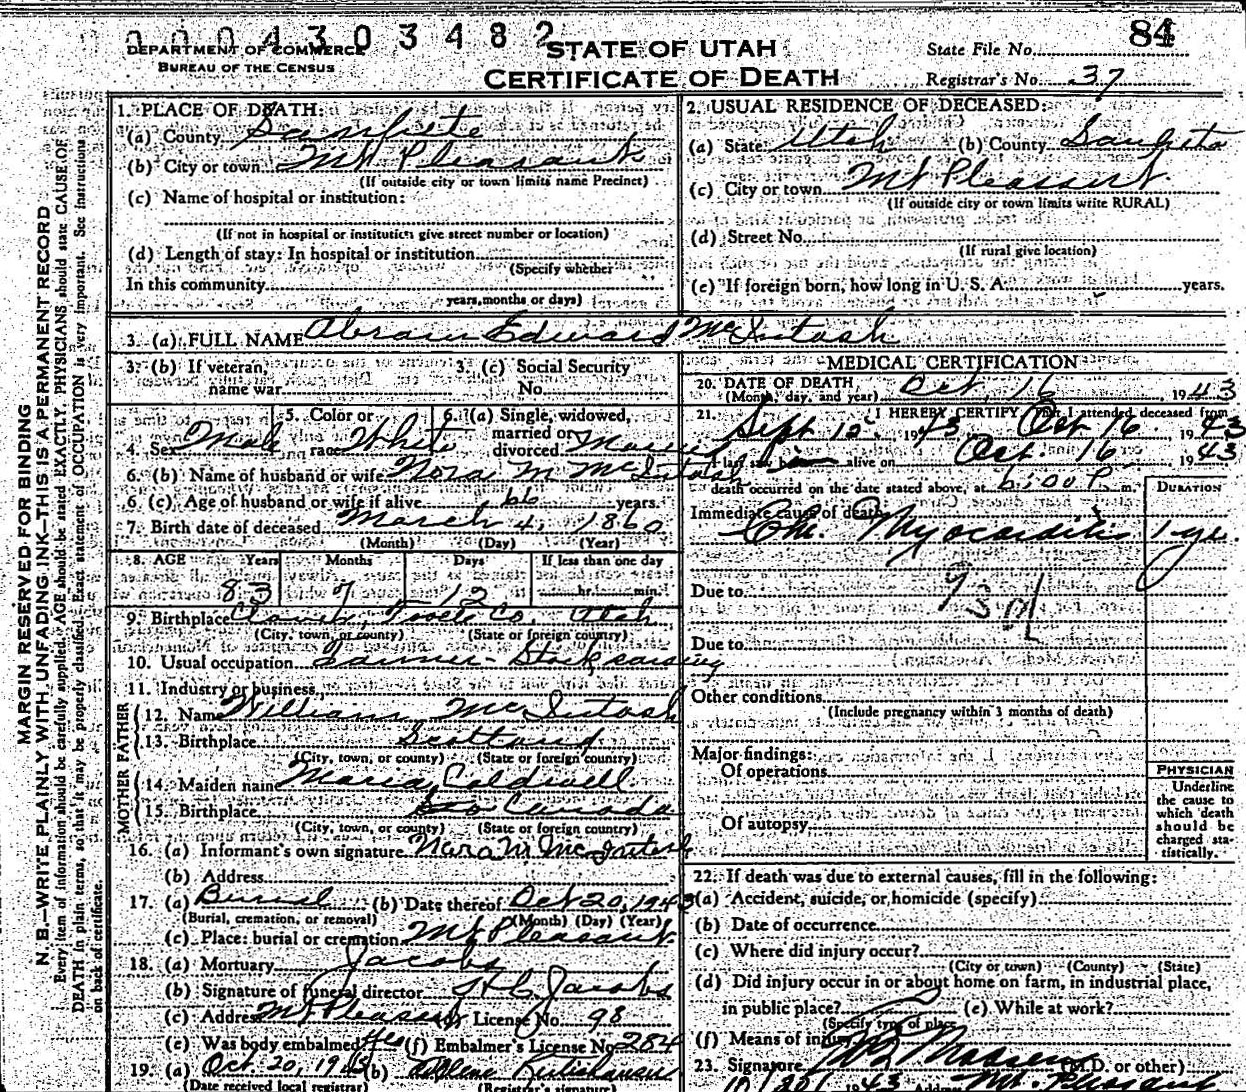 0 0 0 4 3 0 3 4 8 2
84
DEPARTMENT OF COMMERCE
BUREAU OF THE CENSUS
STATE OF UTAH
CERTIFICATE OF DEATH
State File No.
Registrar's No. 37
MARGIN RESERVED FOR BINDING
N. B.—WRITE PLAINLY WITH UNFADING INK—THIS IS A PERMANENT RECORD
Every item of information should be carefully supplied. AGE should be stated EXACTLY. PHYSICIANS should state CAUSE OF
DEATH in plain terms, so that it may be properly classified. Exact statement of OCCUPATION is very important. See instructions
on back of certificate.
1. PLACE OF DEATH:
(a) County Sanpete
(b) City or town Mt Pleasant
(If outside city or town limits name Precinct)
(c) Name of hospital or institution:
(If not in hospital or institution give street number or location)
(d) Length of stay: In hospital or institution
(Specify whether
In this community
years, months or days)
2. USUAL RESIDENCE OF DECEASED:
(a) State Utah (b) County Sanpete
(c) City or town Mt Pleasant
(If outside city or town limits write RURAL)
(d) Street No.
(If rural give location)
(e) If foreign born, how long in U. S. A. years.
3. (a) FULL NAME Abram Edward McIntosh
3. (b) If veteran, name war
3. (c) Social Security No.
4. Sex Male 5. Color or race White 6. (a) Single, widowed, married or divorced Married
6. (b) Name of husband or wife Nora M McIntosh
6 (c) Age of husband or wife if alive 66 years.
7. Birth date of deceased March 4, 1860
(Month) (Day) (Year)
8. AGE Years Months Days If less than one day
83 7 12 hr. min.
9. Birthplace Clover, Tooele Co. Utah
(City, town, or county) (State or foreign country)
10. Usual occupation Farmer - Stockraising
11. Industry or business
FATHER
12. Name William McIntosh
13. Birthplace Scotland
(City, town, or county) (State or foreign country)
MOTHER
14. Maiden name Maria Caldwell
15. Birthplace Canada
(City, town, or county) (State or foreign country)
16. (a) Informant's own signature Nora M McIntosh
(b) Address
17. (a) Burial (b) Date thereof Oct 20, 1943
(Burial, cremation, or removal) (Month) (Day) (Year)
(c) Place: burial or cremation Mt Pleasant
18. (a) Mortuary Jacobs
(b) Signature of funeral director Jacobs
(c) Address Mt Pleasant License No. 98
(e) Was body embalmed Yes (f) Embalmer's License No. 284
19. (a) Oct. 20, 1943 (b)
(Date received local registrar) (Registrar's signature)
MEDICAL CERTIFICATION
20. DATE OF DEATH Oct. 16, 1943
(Month, day, and year)
21. I HEREBY CERTIFY, That I attended deceased from
Sept 15 1943 Oct 16 1943
I last saw him alive on Oct. 16 1943
death occurred on the date stated above, at 6:00 P. m.
DURATION
Immediate cause of death
Chr. Myocarditis 1 yr.
Due to 93d
Due to
Other conditions
(Include pregnancy within 3 months of death)
Major findings:
Of operations
Of autopsy
PHYSICIAN
Underline
the cause to
which death
should be
charged sta-
tistically.
22. If death was due to external causes, fill in the following:
(a) Accident, suicide, or homicide (specify)
(b) Date of occurrence
(c) Where did injury occur?
(City or town) (County) (State)
(d) Did injury occur in or about home on farm, in industrial place,
in public place? (e) While at work?
(Specify type of place)
(f) Means of injury
23. Signature Madsen (M.D. or other)
10/20/ 1943 Address Mt. Pleasant